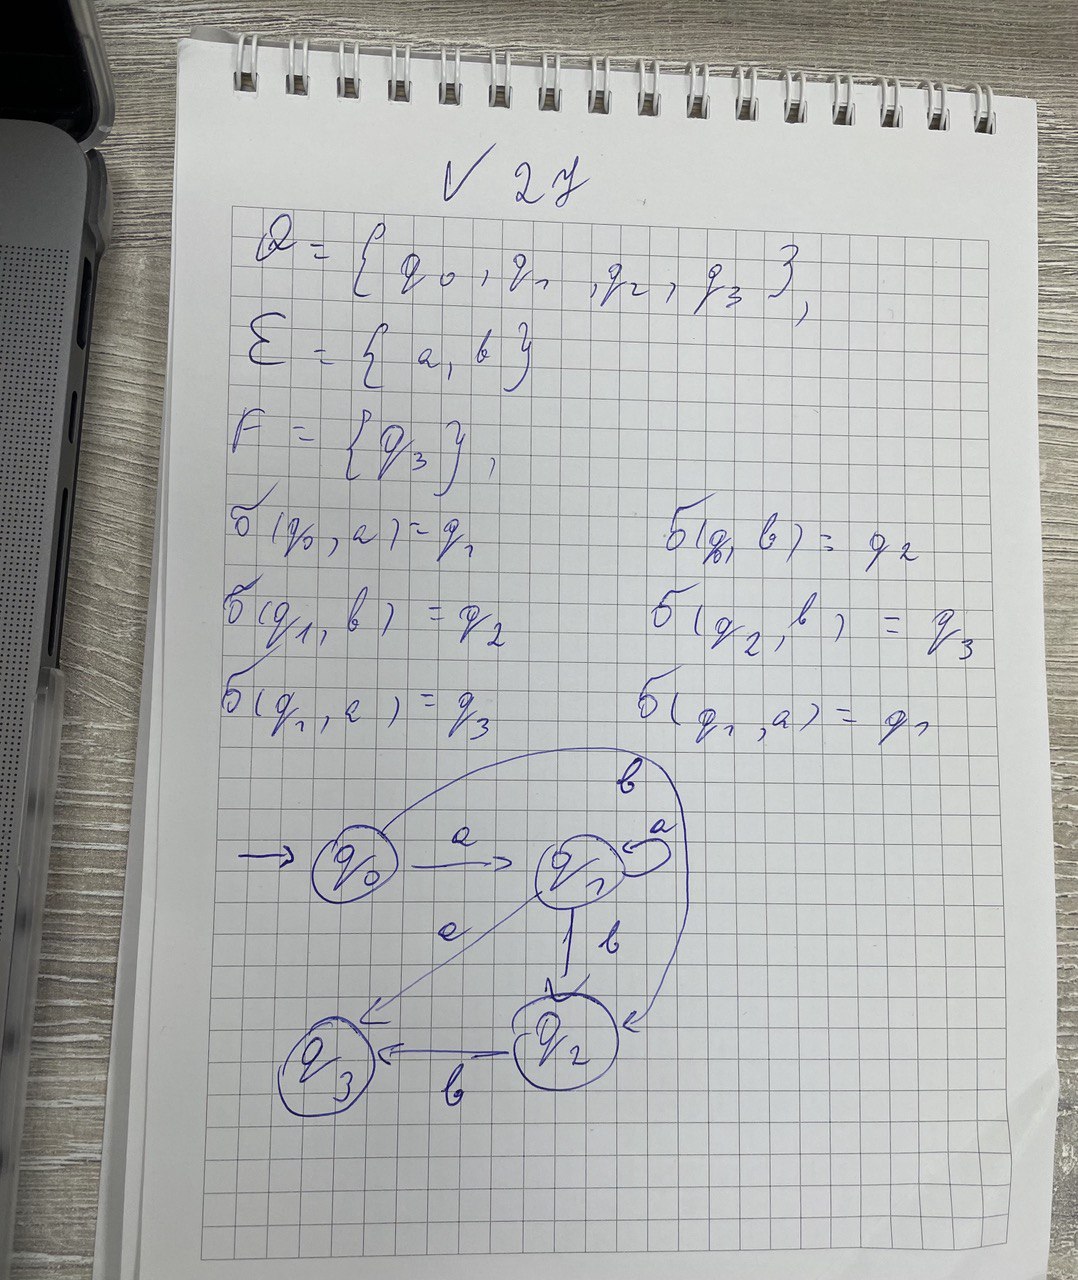 √ 27
Q = { q0, q1, q2, q3 },
Σ = { a, b }
F = { q3 },
δ(q0, a) = q1 δ(q0, b) = q2
δ(q1, b) = q2 δ(q2, b) = q3
δ(q1, a) = q3 δ(q1, a) = q1
b
a a
q0 q1
a b
q3 q2
b